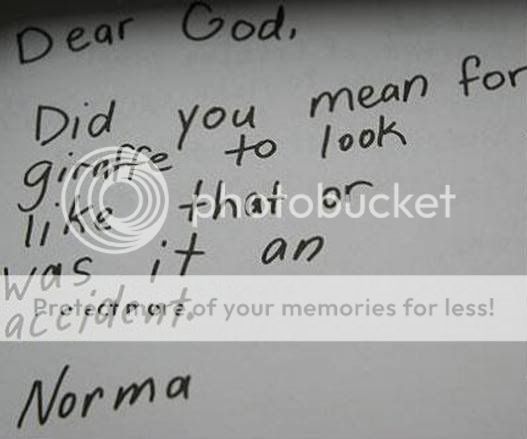 Dear God,
Did you mean for
giraffe to look
like that or
was it an
accident.
Norma
photobucket
Protect more of your memories for less!